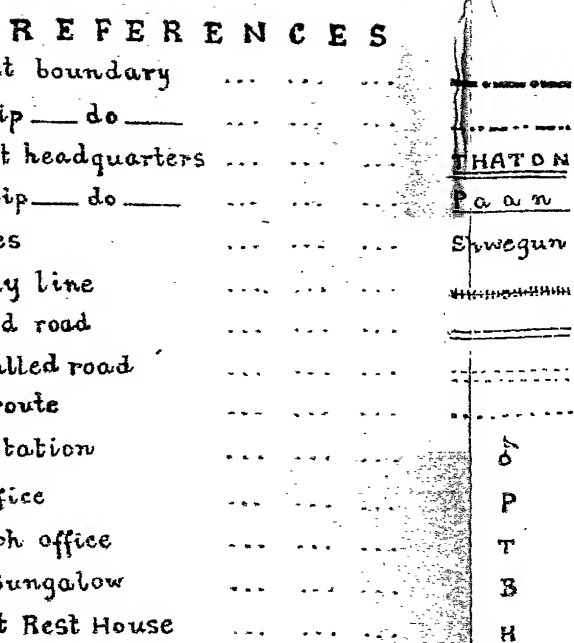 REFERENCES
t boundary ... ... ...
ip __ do __ ... ... ...
t headquarters ... ... ... THATON
ip __ do __ ... ... ... Paan
es ... ... ... Shwegun
y line ... ... ...
d road ... ... ...
lled road ... ... ...
route ... ... ...
tation ... ... ...
fice ... ... ... P
ph office ... ... ... T
Bungalow ... ... ... B
t Rest House ... ... ... H